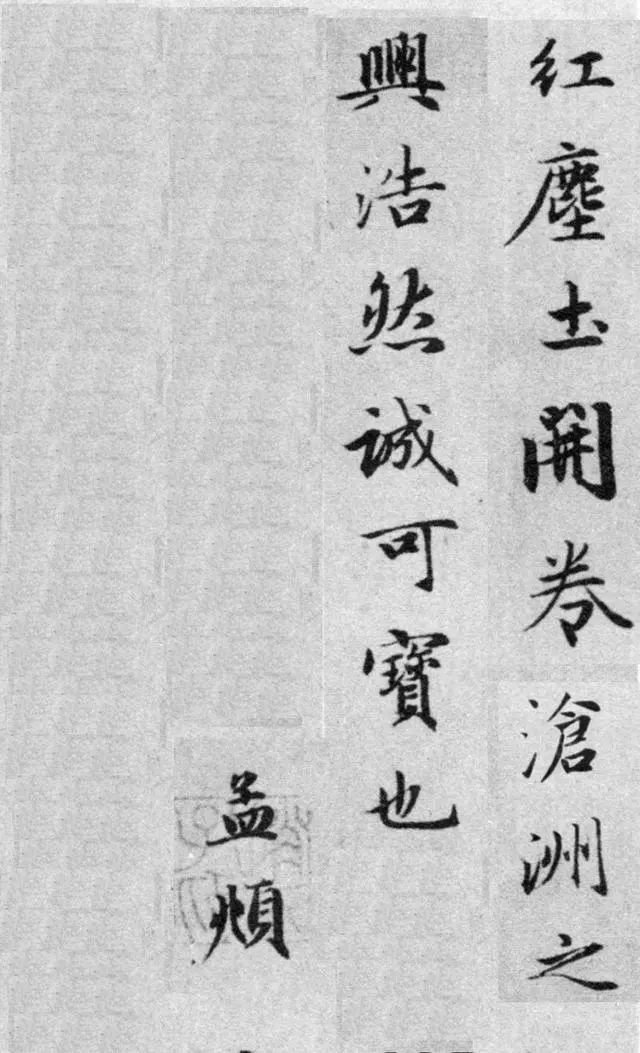 紅塵土開卷滄洲之
興浩然誠可寶也
孟頫